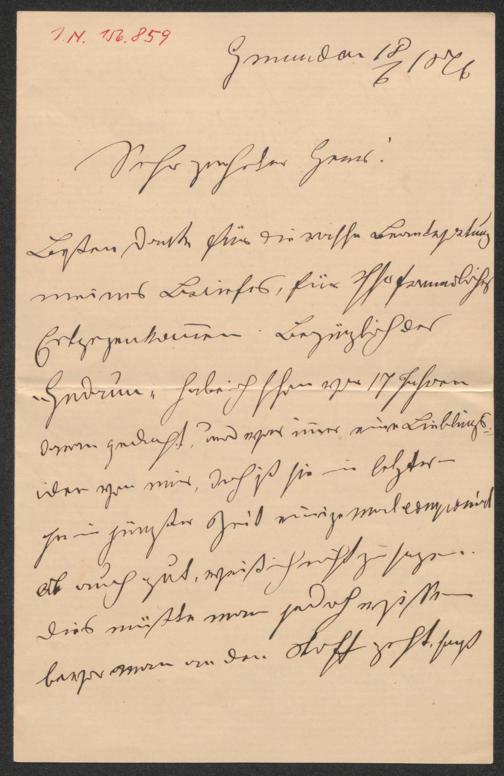 I.N. 156.859
Gmunden 18/6 1876
Sehr geehrter Herr!
Besten Dank für die rasche Beantwortung
meines Briefes, für Ihr freundliches
Entgegenkommen. Bezüglich der
"Gudrun" habe ich schon vor 17 Jahren
daran gedacht, und war immer eine Lieblings-
idee von mir, doch ist sie in letzter
ja in jüngster Zeit einigemal componirt
ob auch gut, weiß ich nicht zu sagen.
Dies müßte man jedoch wissen
bevor man an den Stoff geht, sagt